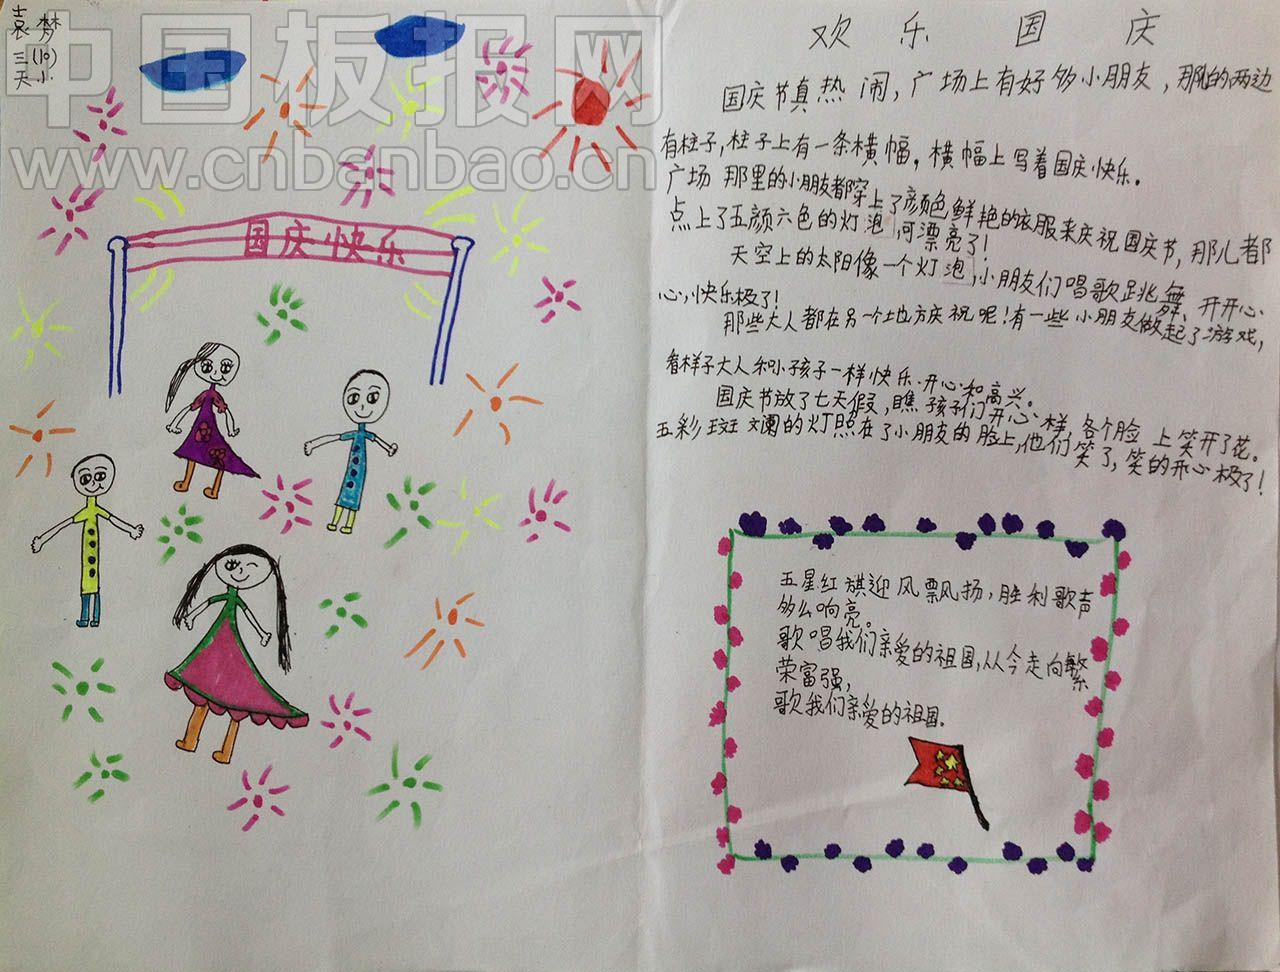 袁梦
三(10)
天小
中国板报网
www.cnbanbao.cn
国庆快乐
欢乐国庆
国庆节真热闹，广场上有好多小朋友，那儿的两边
有柱子，柱子上有一条横幅。横幅上写着国庆快乐。
广场那里的小朋友都穿上了颜色鲜艳的衣服来庆祝国庆节，那儿都
点上了五颜六色的灯泡，可漂亮了！
天空上的太阳像一个灯泡，小朋友们唱歌跳舞、开开心
心，快乐极了！
那些大人都在另一个地方庆祝呢！有一些小朋友做起了游戏，
看样子大人和小孩子一样快乐、开心和高兴。
国庆节放了七天假，瞧孩子们开心样，各个脸上笑开了花。
五彩斑斓的灯照在了小朋友的脸上，他们笑了，笑的开心极了！
五星红旗迎风飘扬，胜利歌声
多么响亮。
歌唱我们亲爱的祖国，从今走向繁
荣富强，
歌我们亲爱的祖国.